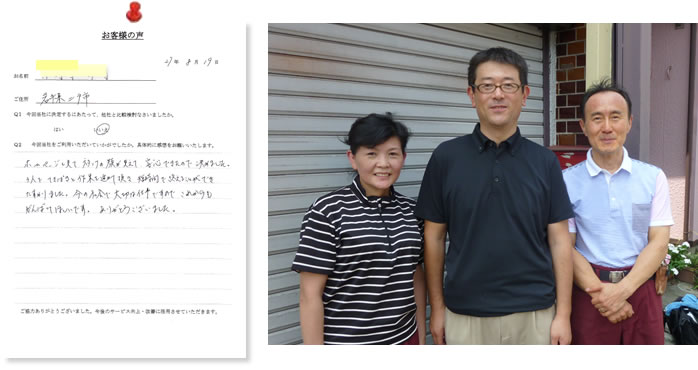 お客様の声
27年 8月 19日
お名前
ご住所 岩手県二戸市
Q1 今回当社に決定するにあたって、他社と比較検討なさいましたか。
はい いいえ
Q2 今回当社をご利用いただいていかがでしたか。具体的に感想をお願いいたします。
ホームページを見て 顔が見えて 安心できたので 決めました。
てきぱきと作業を進めて頂き 短時間で終えることができ
たすかりました。今の社会で大切な仕事ですので これからも
がんばってほしいです。 ありがとうございました。
ご協力ありがとうございました。今後のサービス向上・改善に活用させていただきます。